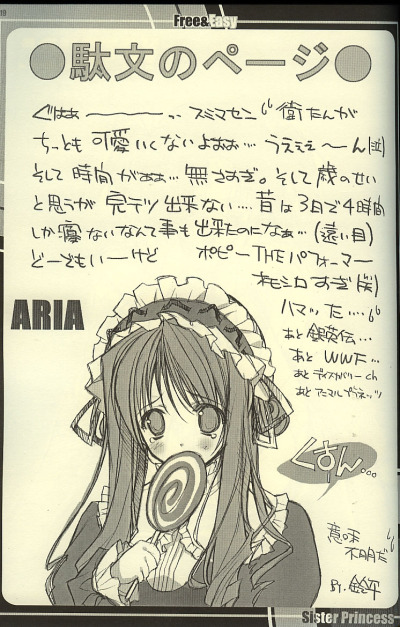 Free&Easy
●駄文のページ●
ぐはぁ〜〜〜っ、スミマセン 衛たんが
ちっとも可愛いくないよぉぉ…うえぇぇ〜ん(泣)
そして時間がぁぁ…無さすぎ。そして歳のせい
と思うが完テツ出来ない…昔は3日で4時間
しか寝ないなんて事も出来たのになぁ…(遠い目)
どーでもいーけど ポピーTHEパフォーマー
オモシロすぎ(笑)
ハマッた…
あと銀英伝…
あとWWF…
あとディスカバリーch
あとアニマルプラネッツ
ARIA
くすん…
意味
不明だ
By.鈴平
Sister Princess